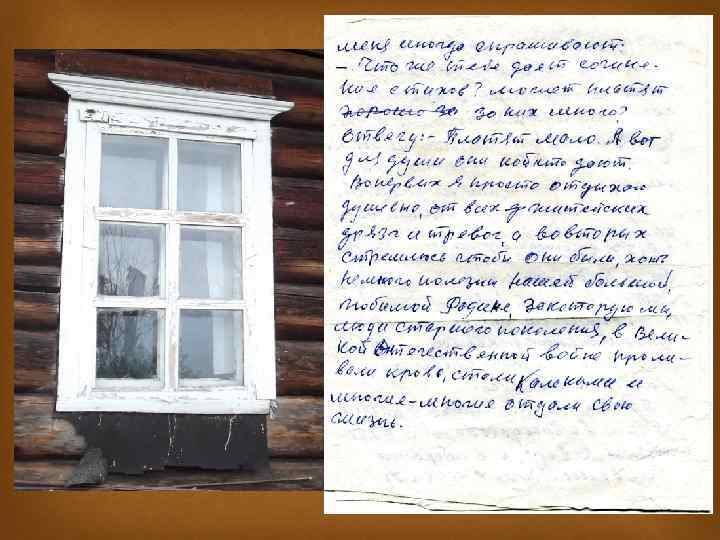 меня иногда спрашивают:
– Что же тебе даёт сочине-
ние стихов? может платят
хорошо за за них много?
отвечу: – Платят мало. А вот
для души они кой что дают.
Вопервых я просто отдыхаю
душевно, от всех житейских
дрязг и тревог, а вовторых
стремлюсь чтобы они были, хоть
немного полезны нашей большой,
любимой Родине, за которую мы,
люди старшего поколения, в Вели-
кой Отечественной войне проли-
вали кровь, стали калеками и
многие-многие отдали свою
жизнь.